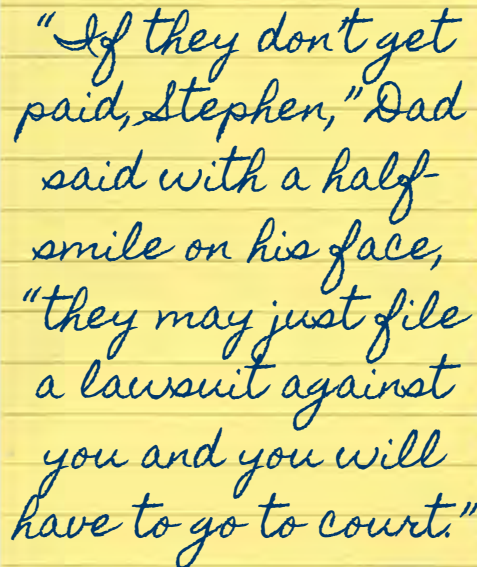 “If they don’t get
paid, Stephen,” Dad
said with a half-
smile on his face,
“they may just file
a lawsuit against
you and you will
have to go to court.”